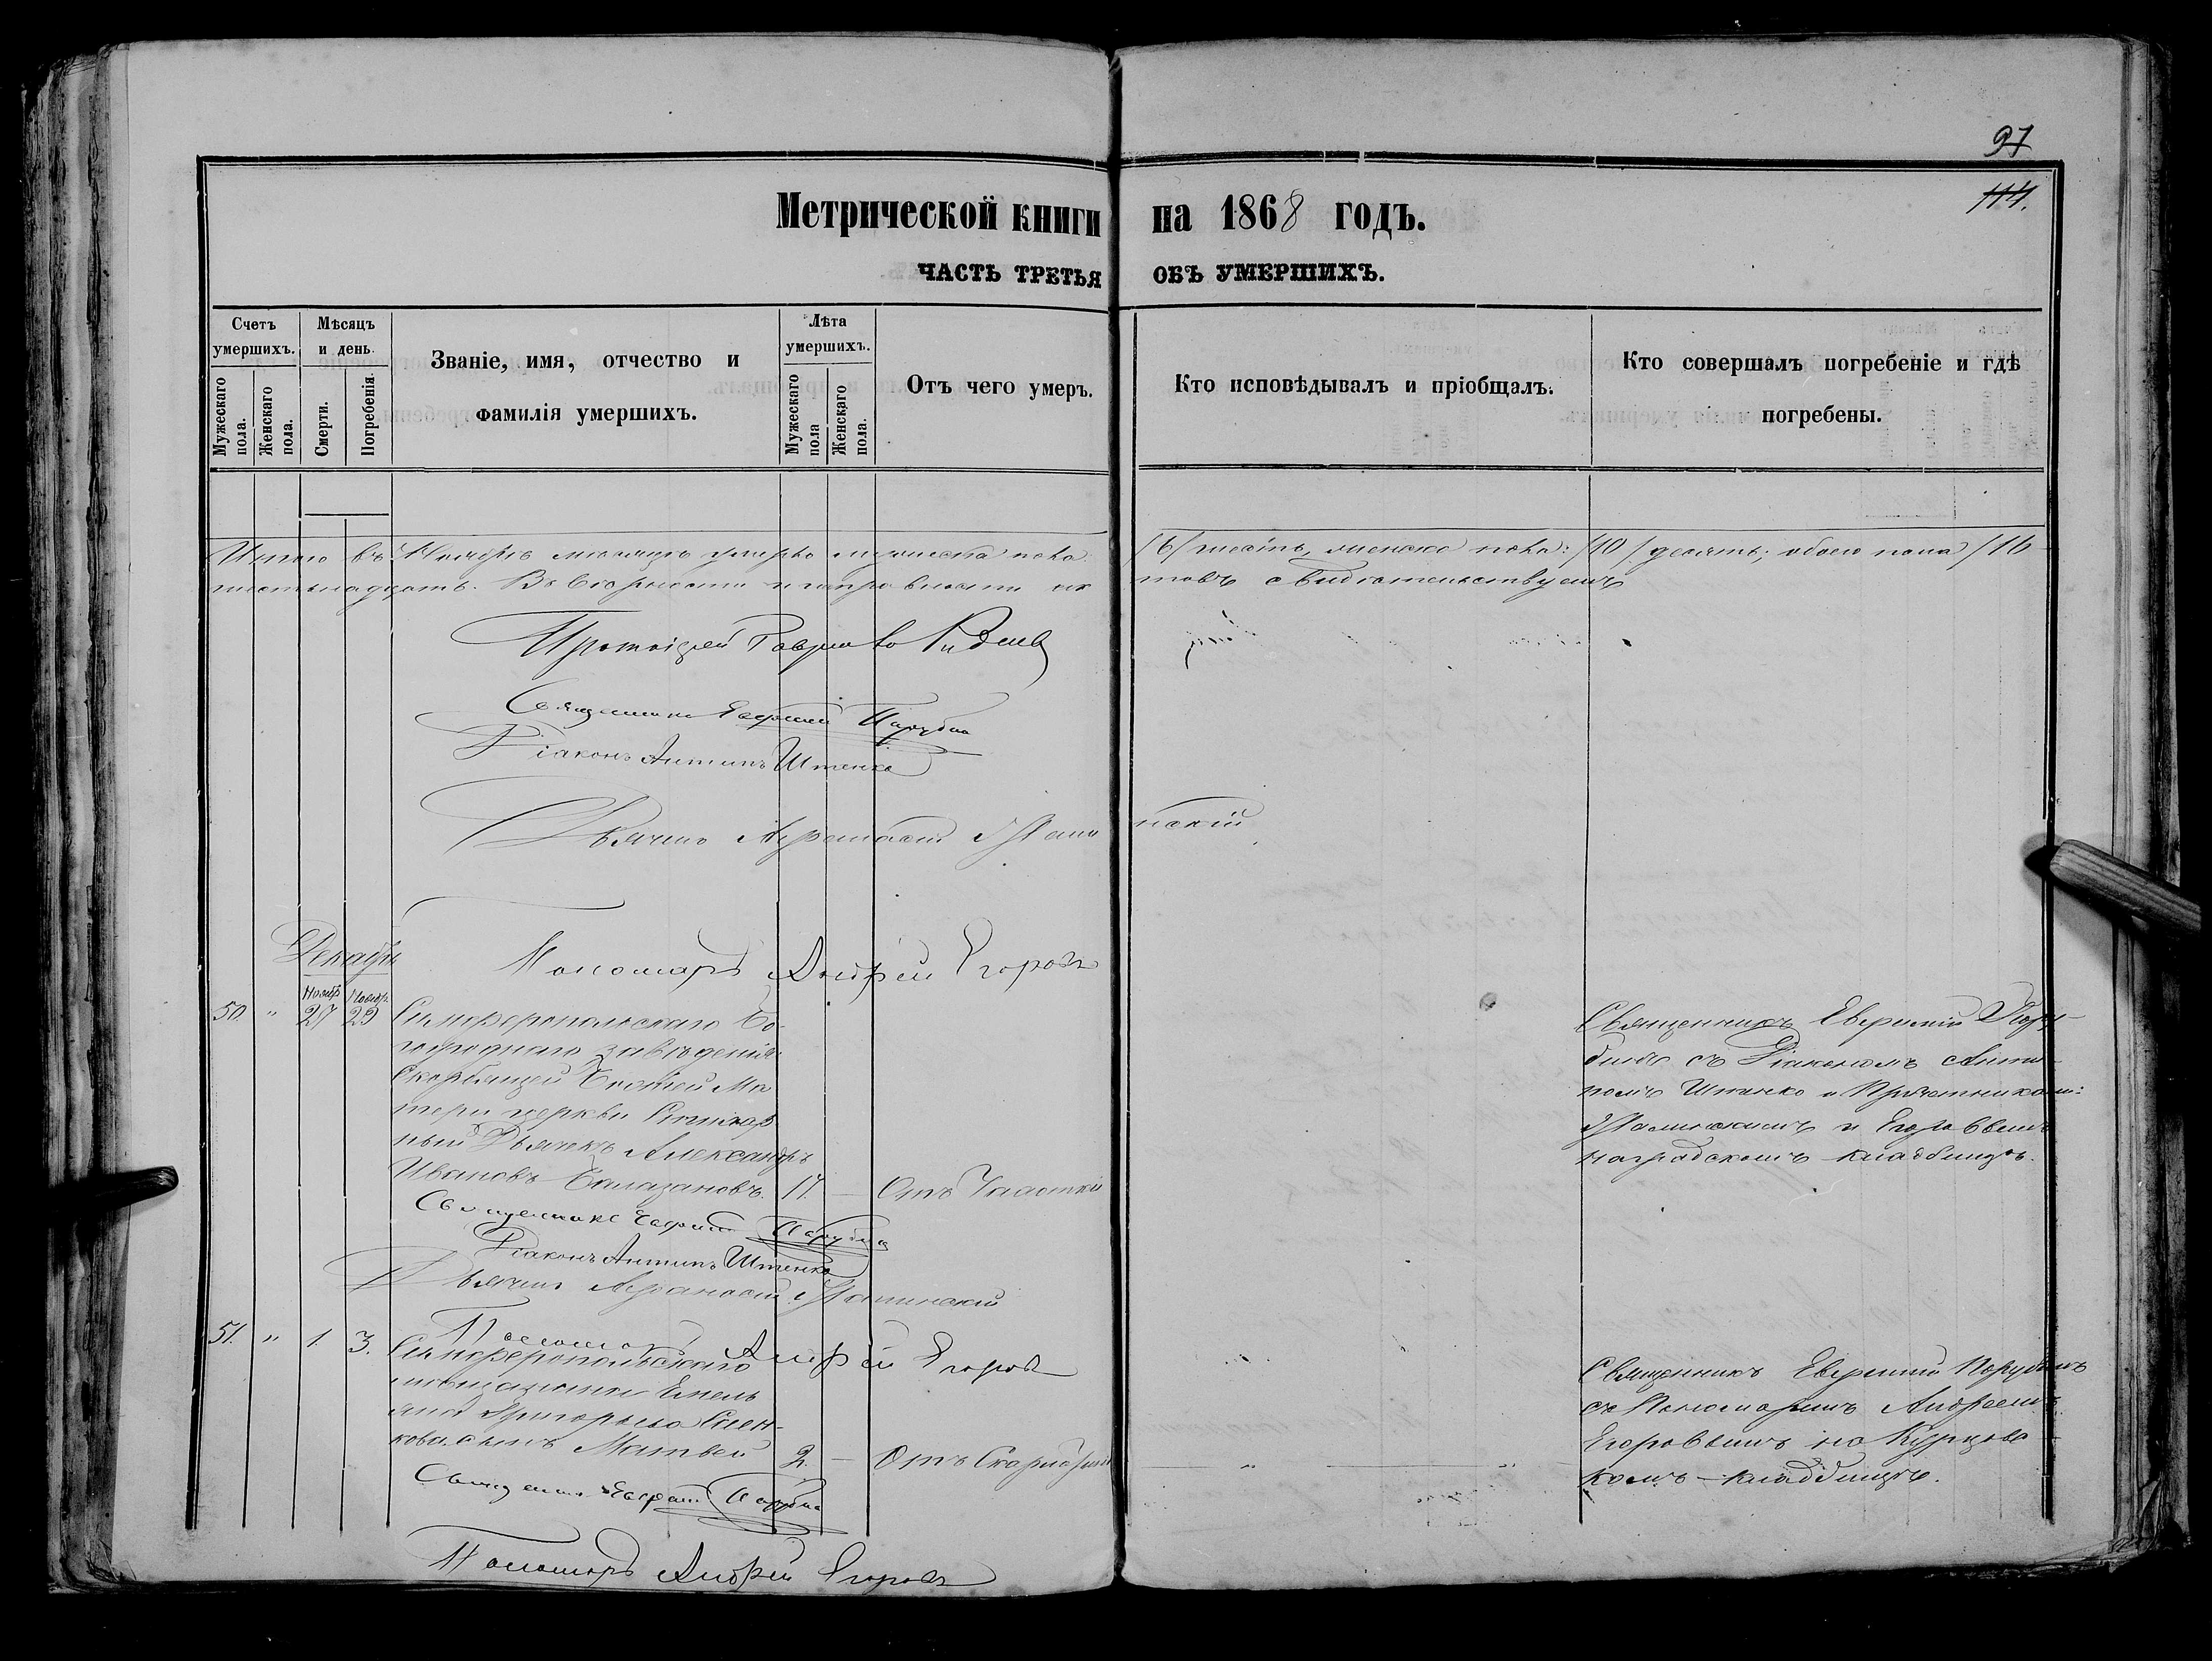 97
114.
Метрической книги на 1868 годъ.
ЧАСТЬ ТРЕТЬЯ ОБЪ УМЕРШИХЪ.
Счетъ умершихъ.
Мужескаго пола.
Женскаго пола.
Мѣсяцъ и день.
Смерти.
Погребенія.
Званіе, имя, отчество и фамилія умершихъ.
Лѣта умершихъ.
Мужескаго пола
Женскаго пола.
Отъ чего умеръ.
Кто исповѣдывалъ и пріобщалъ.
Кто совершалъ погребеніе и гдѣ погребены.
Итого въ Ноябрѣ мѣсяцѣ умерло мужеска пола /6/ шесть, женска пола: /10/ десять; обоего пола /16
шестьнадцать. Въ вѣрности и справности актовъ свидѣтельствуемъ
Протоіерей Гавріилъ
Священникъ Евфимій Парубинъ
Діаконъ Антипъ Штенко
Дьячекъ Афанасій
Пономарь Андрей Егоровъ
Декабрь
50. " Ноябр. 27 Ноябр. 29
Симферопольскаго Бо-
гоугоднаго заведенія
Скорбящей Божіей Ма
тери церкви
ный Дьячекъ Александръ
Ивановъ 17. — Отъ Чахотки
Священникъ Евфимій Пару-
бинъ съ Діакономъ Анти-
помъ Штенко и Причетниками:
и Егоровымъ
на градскомъ кладбищѣ.
Священникъ Евфимій Парубинъ
Діаконъ Антипъ Штенко
Дьячекъ Афанасій
Пономарь Андрей Егоровъ
51. " 1. 3.
Симферопольскаго
мѣщанина Емель
яна Григорьева
кова сынъ Матвей 2. — Отъ Скарлатины
Священникъ Евфимій Парубинъ
съ Пономаремъ Андреемъ
Егоровымъ на
комъ кладбищѣ.
Священникъ Евфимій Парубинъ
Пономарь Андрей Егоровъ